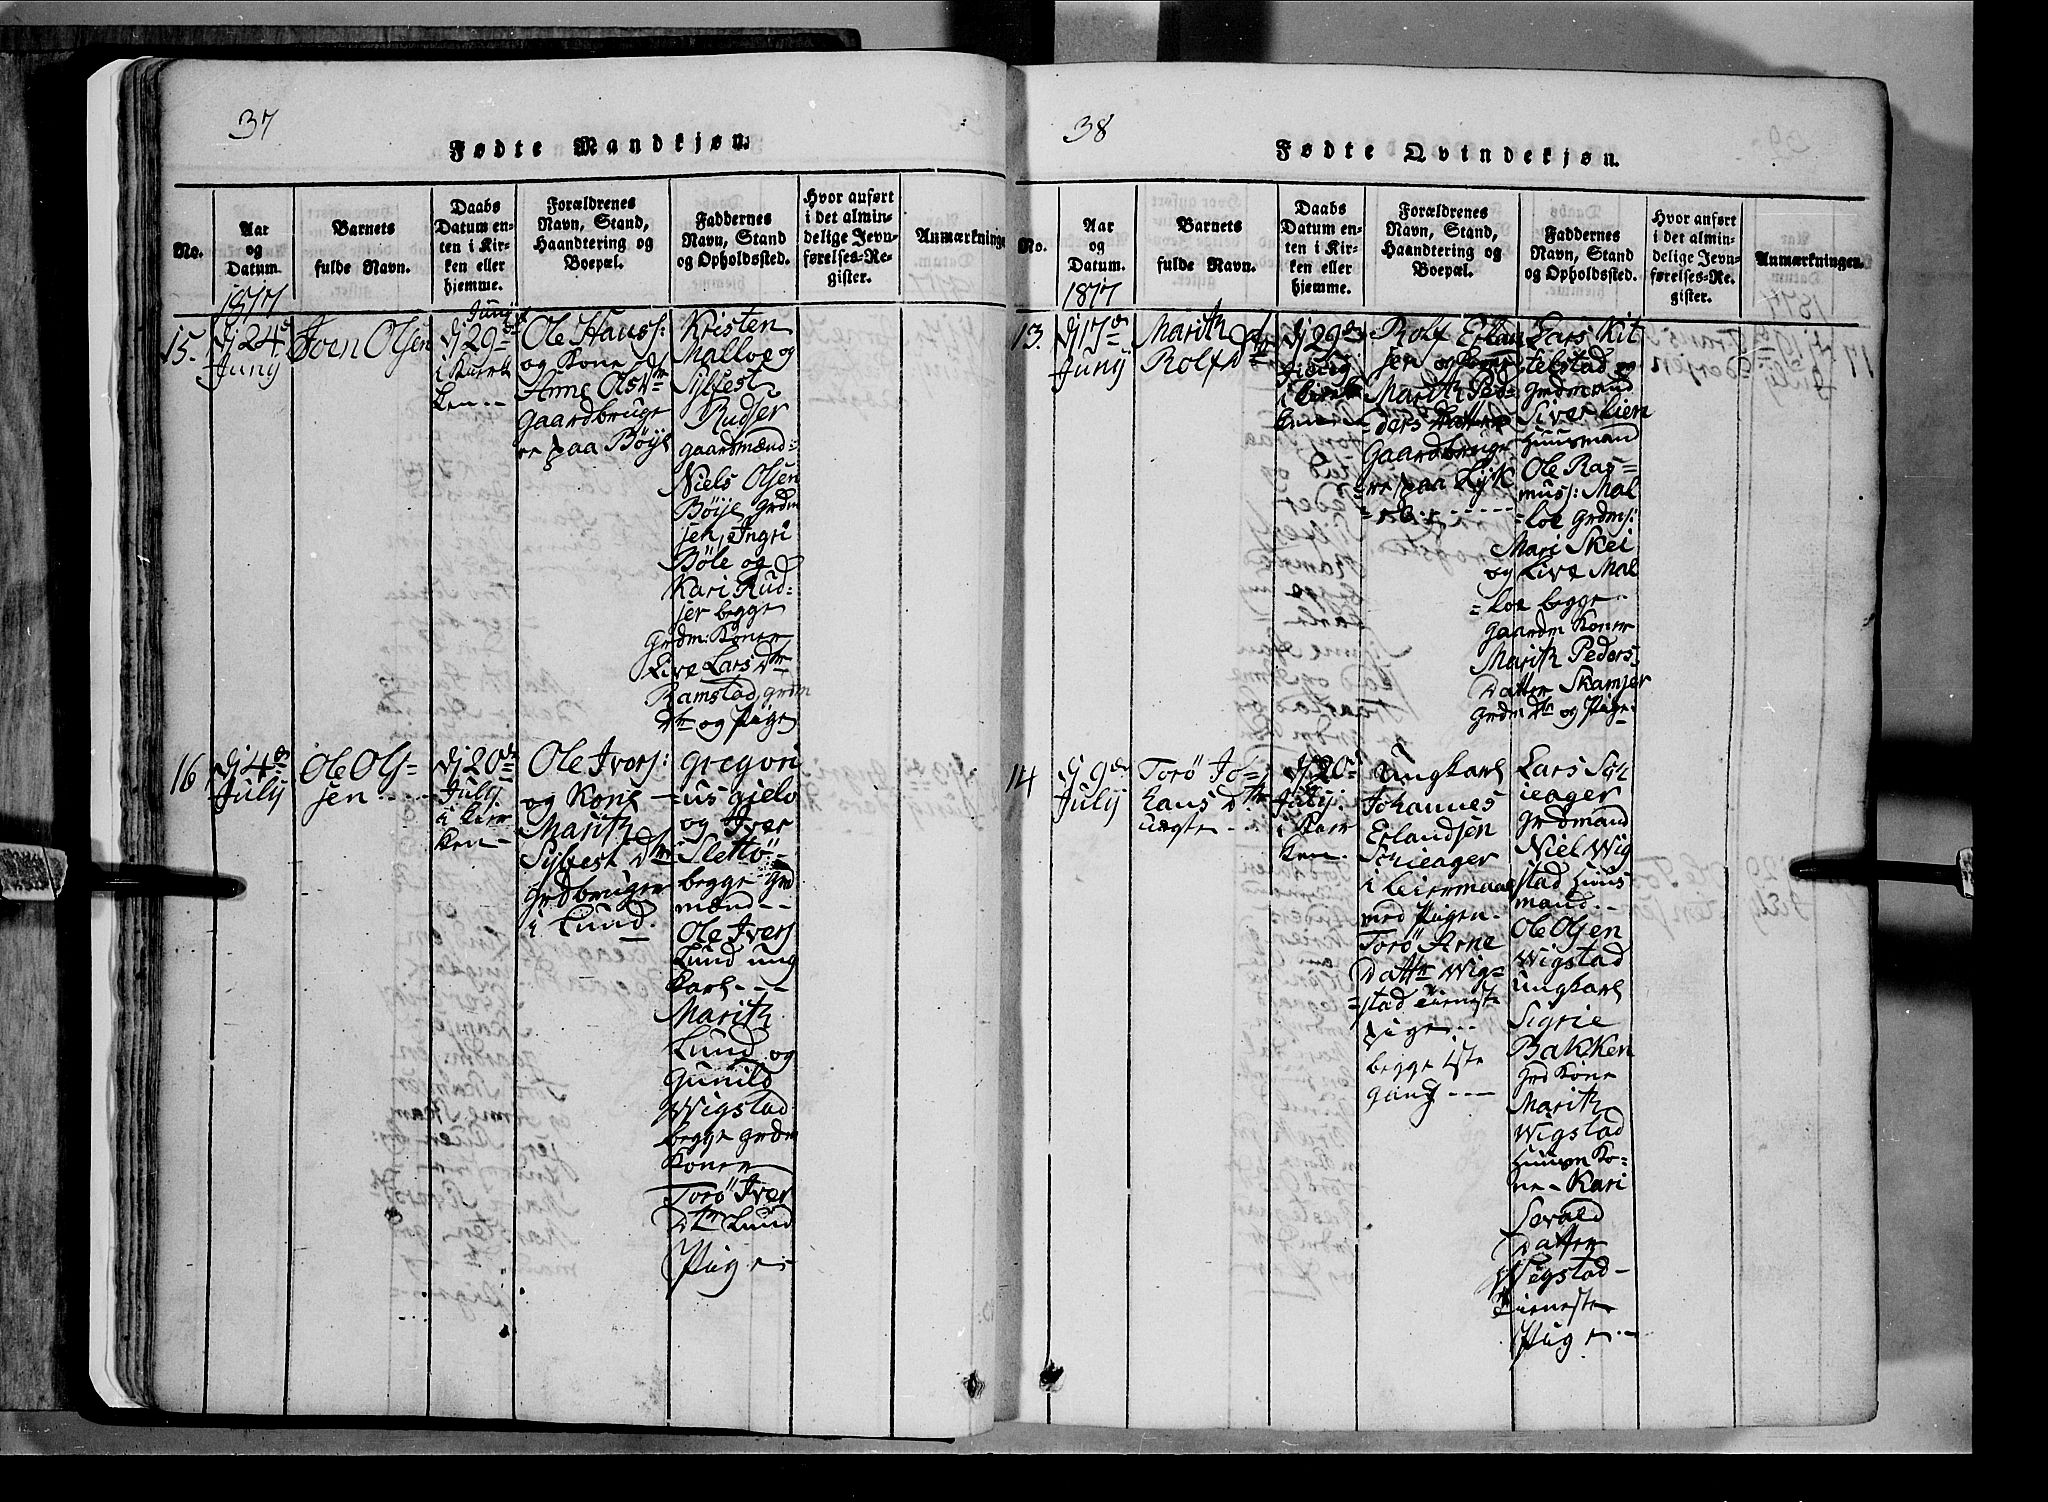 37
Fødte Mandkjøn.
No.
Aar
og
Datum.
Barnets
fulde Navn.
Daabs
Datum en-
ten i Kir-
ken eller
hjemme.
Forældrenes
Navn, Stand,
Haandtering og
Boepæl.
Faddernes
Navn, Stand
og Opholdssted.
Hvor anført
i det almin-
delige Jevn-
førelses-Re-
gister.
Anmærkninge
1817
15.
Dj 24de
Juny
Joen Olsen
Juny
Dj 29de
i Kirk
ken --
Ole Hanss:
og Kone
Anne Olsdtr
Gaardbruge
re paa Böye
Kristen
Malloe og
Sylfest
Rudser
gaardmænd=
Niels Olsen
Böye Grdm
sen, Ingri
Böle og
Kari Rud=
ser begge
Grdm: Koner
Live Lars Dtr
Ramstad, grdm
dtr og Pige
16
Dj 4de
July
Ole Ol=
sen ----
Dj 20de
July
i Kirr
ken -
Ole Ivers:
og Kone -
Marith
Sylvest Dtr
Grdbruger
i Lund.
Gregori
us gielv
og Iver
Slettö=
begge Grd
mænd--
Ole Ivers
Lund ung
karl---
Marith
Lund og
Gunild
Wigstad
begge grdm
Koner
Torö Iver
Dtr Lund
Pige-
38
Fødte Qvindekjøn.
No.
Aar
og
Datum.
Barnets
fulde Navn.
Daabs
Datum en-
ten i Kir-
ken eller
hjemme.
Forældrenes
Navn, Stand,
Haandtering og
Boepæl.
Faddernes
Navn, Stand
og Opholdssted.
Hvor anført
i det almin-
delige Jevn-
førelses-Re-
gister.
Anmærkningen.
1817
13.
Dj 17de
Juny
Marith
Rolfsdtr
Dj 29de
Rolf Erlan
sen og Kone
Marith Ped=
ders Datter
Gaardbruge
=re paa Lyk
Lars Kit
telstad og
grdmand
Siver Lien
Huusmand
Ole Ras=
muss: Mal
=loe grdms:
Mari Skei
og Live Mal
=loe begge
gaardm Koner
Marith Peders
Datter Skamser
Grdm Dtr og Pige-
14
Dj 9de
July
Torö Jo=
hans Dtr
uægte --
Dj 20de
July:
i Kirr
ken.
Ungkarl
Johannes
Erlandsen
Schieager
i Leiermaal
med Pigen.
Torö Arne
Datter Wig=
=stad tieneste
pige--
begge 1ste
gang ---
Lars Sch
ieager
Grdmand
Niel Wig
stad Huus
mand..
Ole Olsen
Wigstad
ungkarl
Sigrie
Bakken
Grd Kone
Marith
Wigstad
Huusm Ko=
ne - Kari
Datter
Wegstad-
Tieneste
Pige--